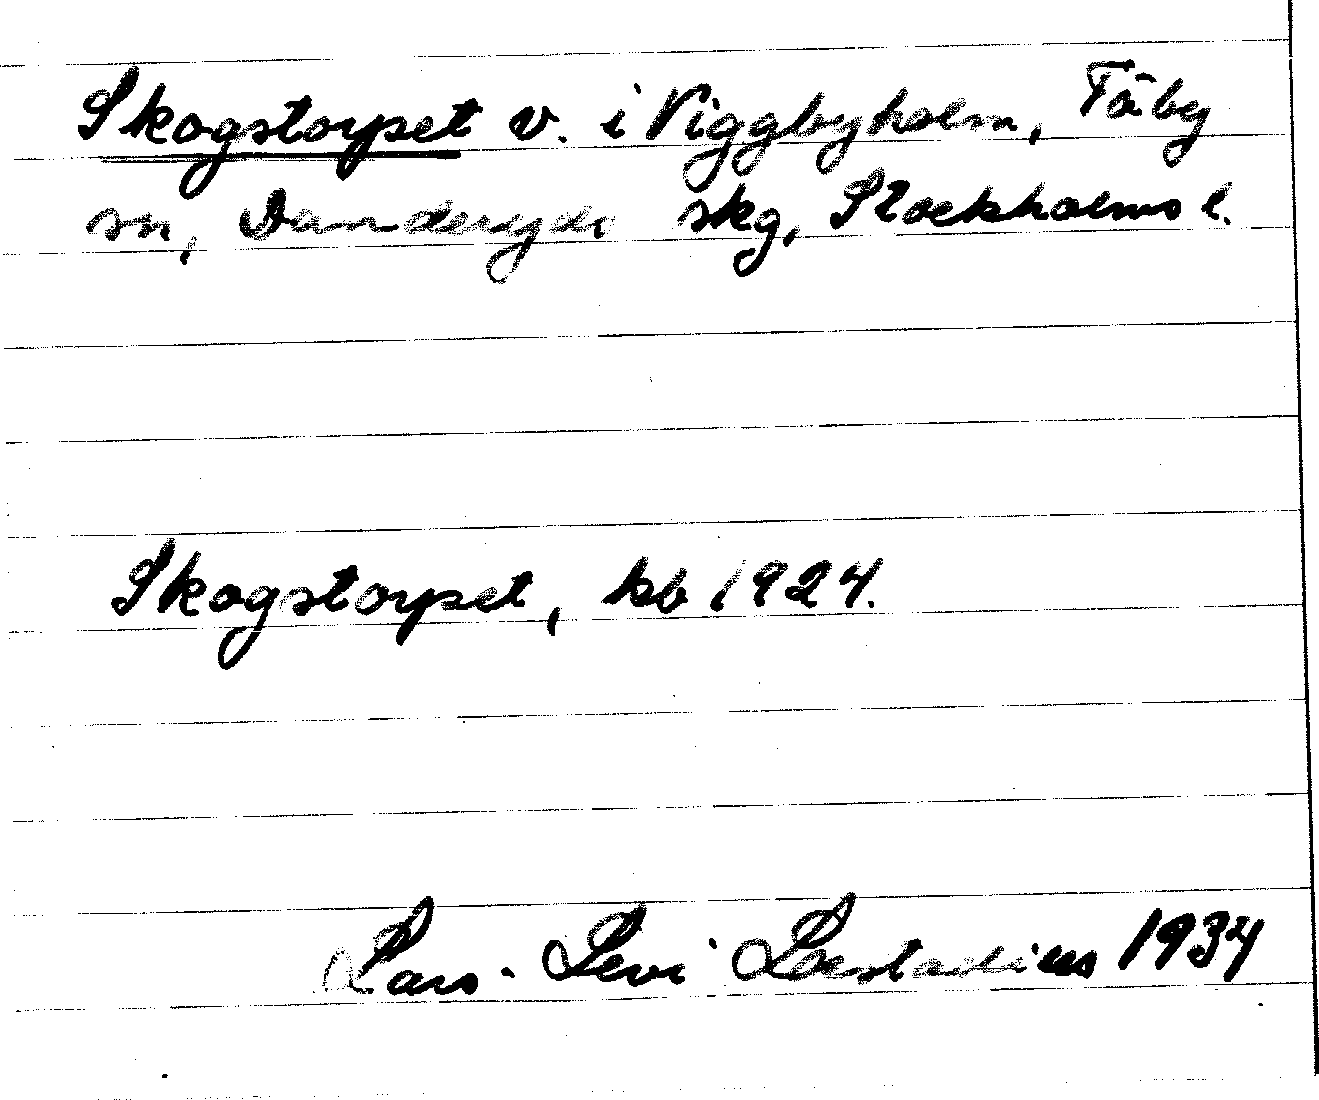 Skogstorpet v. i Viggbyholm, Täby
sn, Danderyds skg, Stockholms l.
Skogstorpet, kb 1924.
Lars-Levi Læstadius 1934